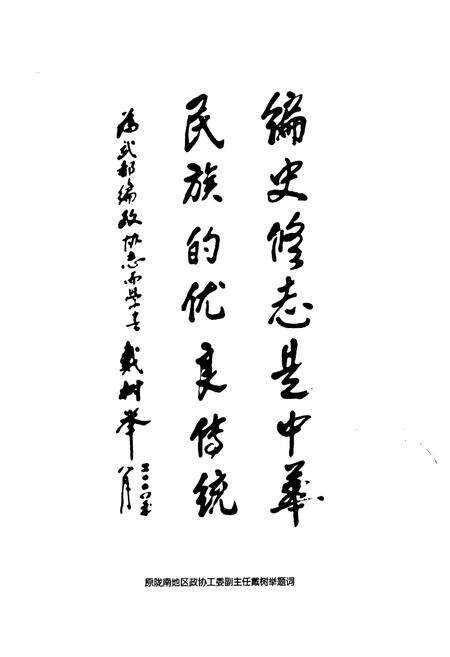 编史修志是中华
民族的优良传统
为武都编政协志而学书 戴树举
二〇〇八年
八月
原陇南地区政协工委副主任戴树举题词